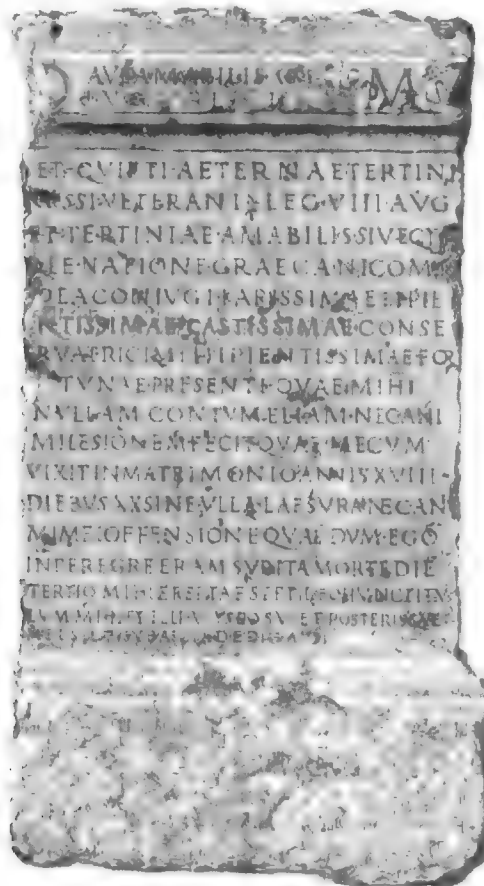 D M S
ET QVIETI AETERNAE TERTINI
GESSI VETERANI LEG VIII AVG
ET TERTINIAE AMABILIS SIVE CY
RILE NATIONE GRAECA NICOME
DEA CONIVGI KARISSIMAE ET PIE
NTISSIMAE CASTISSIMAE CONSE
RVATRICI MIHI PIENTISSIMAE FOR
TVNAE PRESENTI QVAE MIHI
NVLLAM CONTVMELIAM NEC ANI
MI LESIONEM FECIT QVAE MECVM
VIXIT IN MATRIMONIO ANNIS XVIII
DIEBVS XX SINE VLLA LAESVRA NEC AN
MI MEI OFFENSIONE QVAE DVM EGO
IN PEREGRE ERAM SVBITA MORTE DIE
TERTIO MIHI EREPTA EST
ET POSTERISQVE